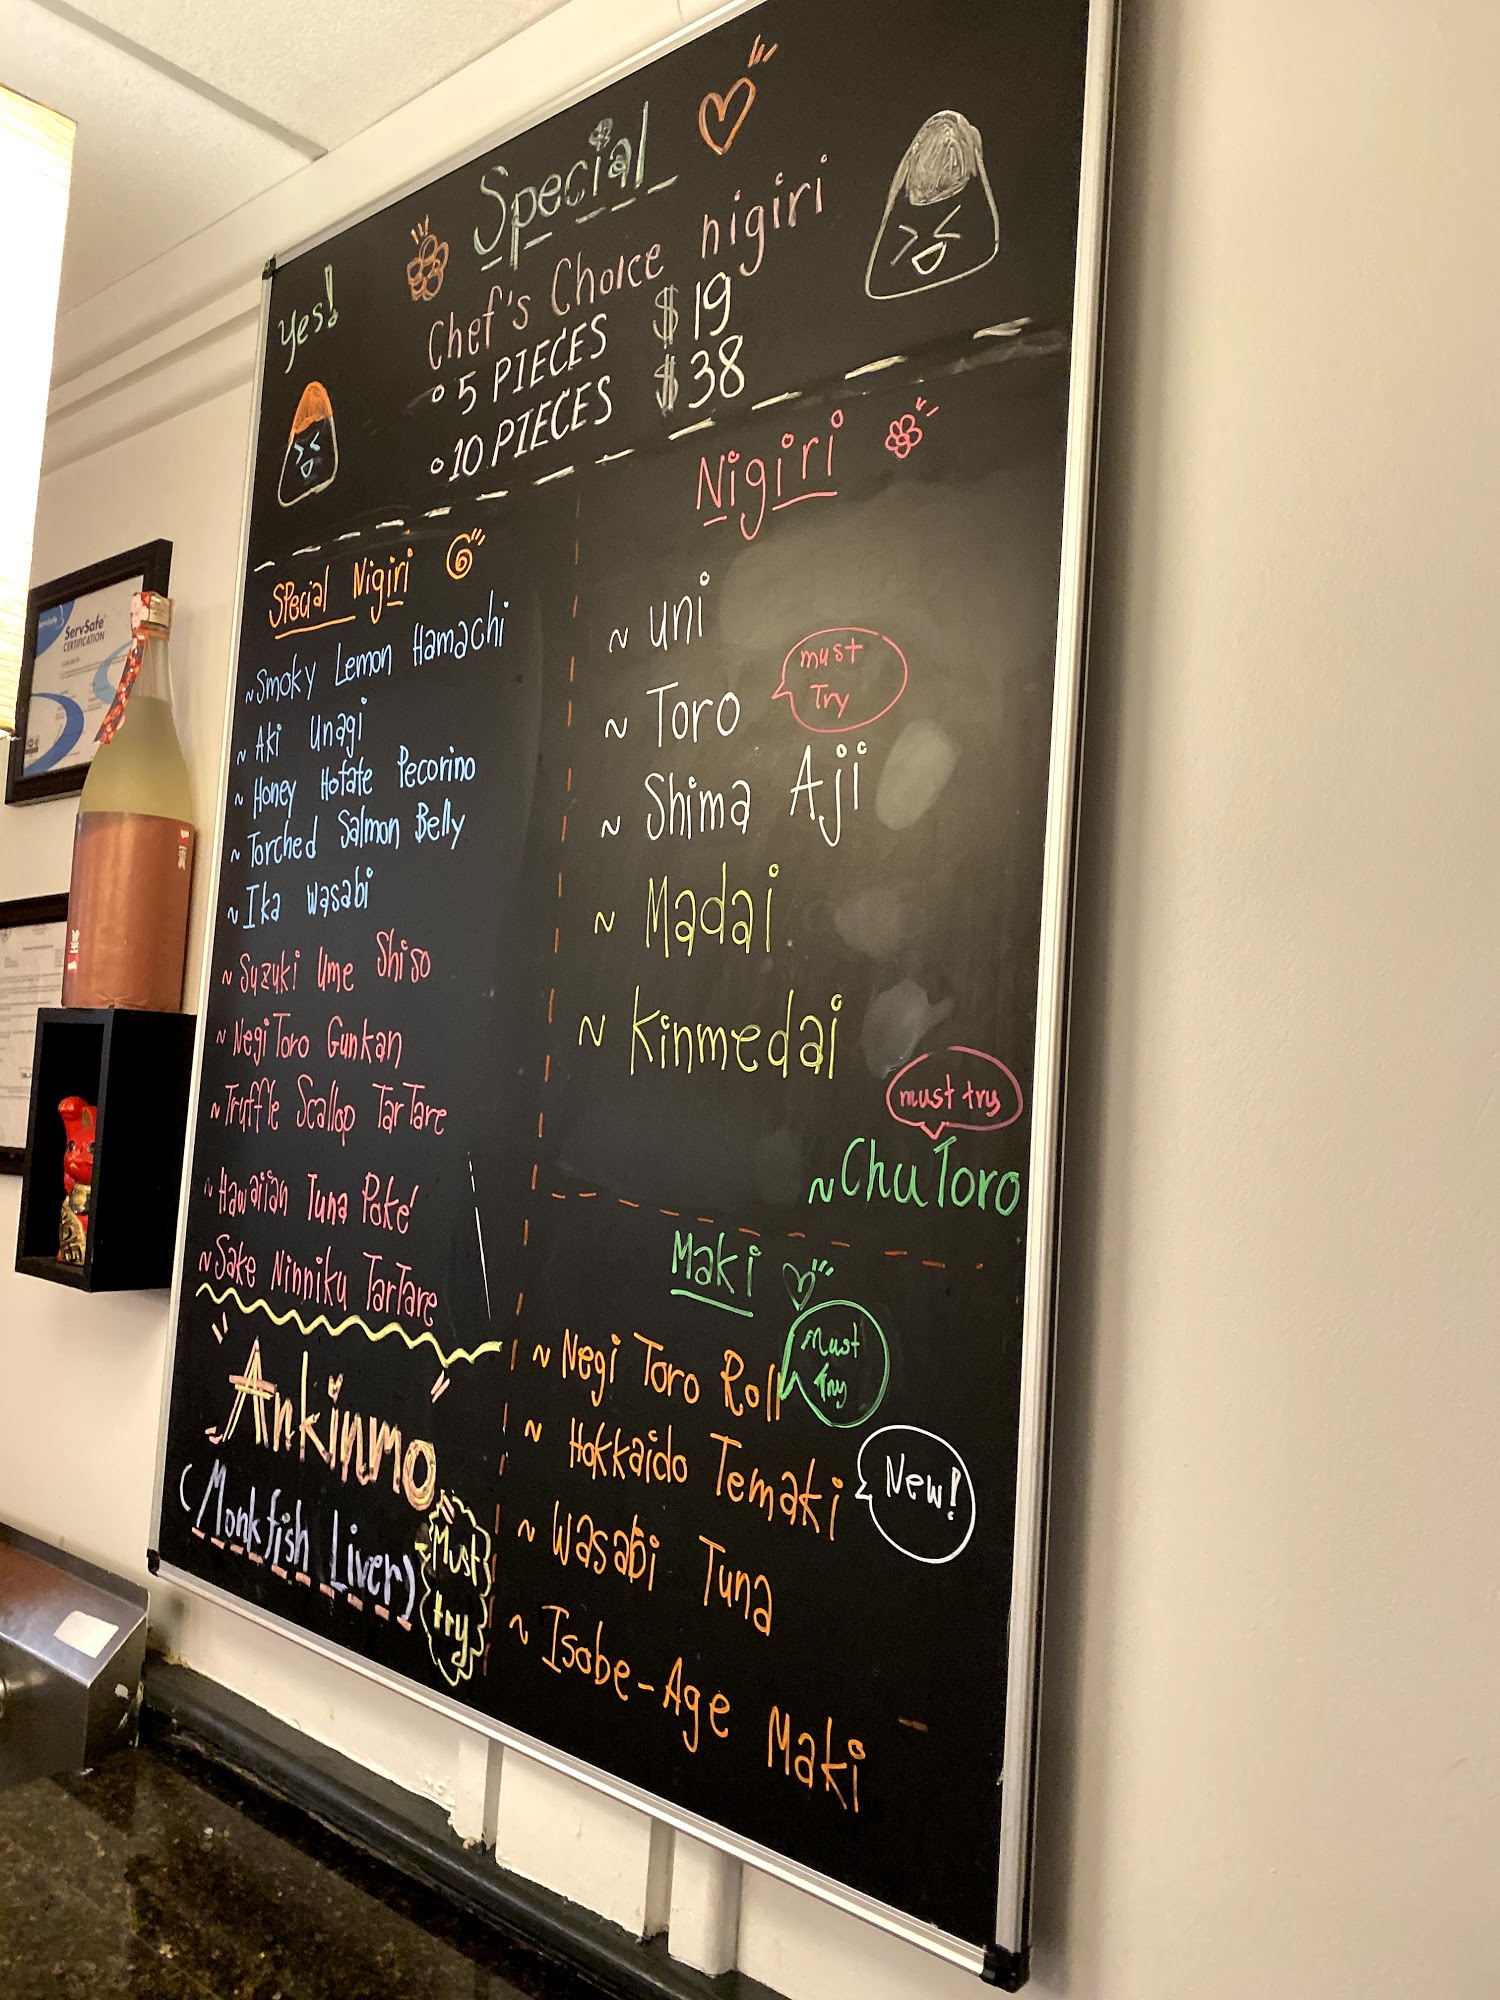 Special
Yes!
Chef's Choice nigiri
° 5 PIECES $19
° 10 PIECES $38
Special Nigiri
~ Smoky Lemon Hamachi
~ Aki Unagi
~ Honey Hotate Pecorino
~ Torched Salmon Belly
~ Ika wasabi
~ Suzuki Ume Shiso
~ Negi Toro Gunkan
~ Truffle Scallop TarTare
~ Hawaiian Tuna Poke'
~ Sake Ninniku TarTare
Ankinmo
(Monkfish Liver)
Must
try
Nigiri
~ uni
~ Toro
must
Try
~ Shima Aji
~ Madai
~ Kinmedai
must try
~ Chu Toro
Maki
~ Negi Toro Roll
Must
Try
~ Hokkaido Temaki
New!
~ Wasabi Tuna
~ Isobe-Age Maki
ServSafe
CERTIFICATION